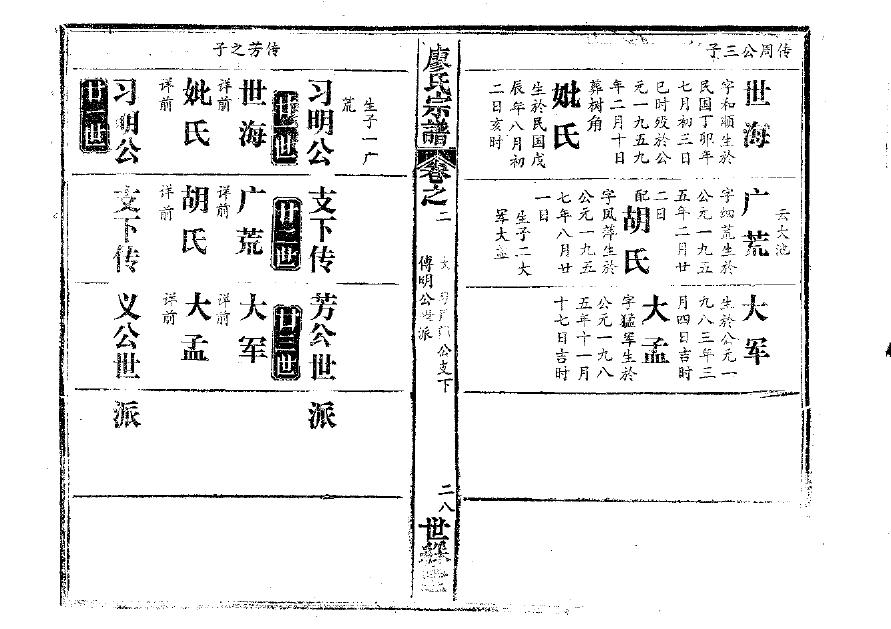 传周公三子
世海
字和顺生於
民国丁卯年
七月初三日
巳时殁於公
元一九五九
年二月十日
葬树角
妣氏
生於民国戊
辰年八月初
二日亥时
云大池
广荒
字细荒生於
公元一九五
五年二月廿
二日
配
胡氏
字风萍生於
公元一九五
七年八月廿
一日
生子二大
军大孟
大军
生於公元一
九八三年三
月四日吉时
大孟
字猛军生於
公元一九八
五年十一月
十七日吉时
廖氏宗譜
卷之二
公支下
傳明公
派
二八
世
传芳之子
习明公支下传芳公世派
廿世
廿二世
廿三世
生子一广
荒
世海
详前
妣氏
详前
广荒
详前
胡氏
详前
大军
详前
大孟
详前
习明公支下传义公世派
世